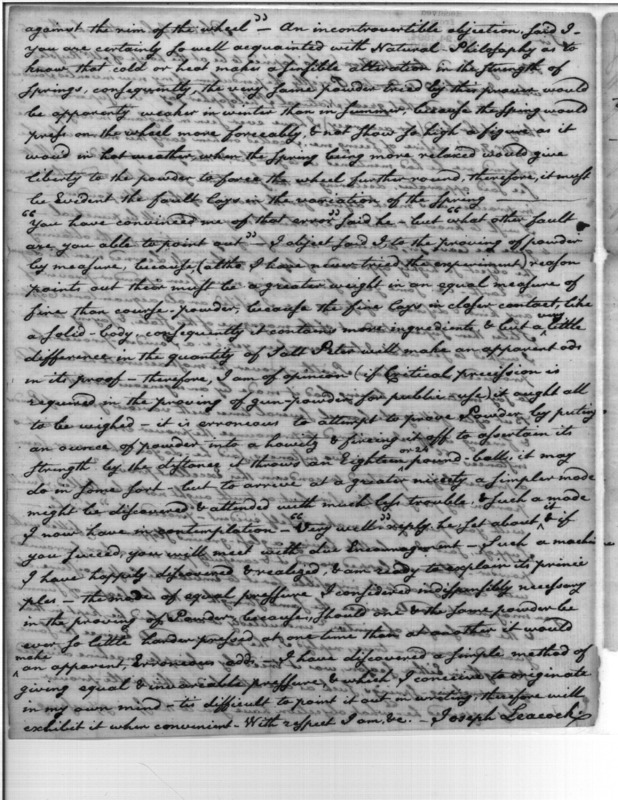 against the rim of the wheel" — An incontrovertible objection, said I —
you are certainly so well acquainted with Natural Philosophy as to
know that cold or heat makes a sensible alteration in the strength of
Springs, consequently, the very same powder tried by this prover would
be apparently weaker in winter than in summer, because the spring would
press on the wheel more forceably, & not show so high a figure as it
woud in hot weather, when the spring being more relaxed would give
liberty to the powder to force the wheel further round, therefore, it must
be evident the fault lays in the variation of the spring
"You have convinced me of that error" said he — but "what other fault
are you able to point out" — I object said I, to the proving of powder
by measure, because, (altho I have never tried the experiment) reason
points out there must be a greater weight in an equal measure of
fine than course-powder, because the fine lays in closer contact, like
a solid-body, consequently it contains more ingredients & but a very little
difference in the quantity of Salt Peter will make an apparent ods
in its proof — therefore, I am of opinion (if Critical precission is
required in the proving of gun-powder for public-use) it ought all
to be weighed — it is erroneous to attempt to prove Powder by puting
an ounce of powder into a howitz & fireing it off to assertain its
strength by the distance it throws an Eighteen or 24 pound-ball; it may
do in some sort — but to arrive at a greater nicety a simpler mode
might be discovered & attended with much less trouble, & such a mode
I now have in contemplation — "Very well" reply'd he, set about it, & if
you succeed, you will meet with due Encouragement — Such a machine
I have happily discovered & realized, & am ready to explain its princi
ples — the mode of equal pressure, I considered indispensibly necessary
in the proving of Powder, because, should one & the same powder be
ever so little harder pressed at one time than at another it would
make an apparent, Erroneous odds — I have discovered a simple method of
giving equal & invariable pressure, & which I conceive to originate
in my own mind — tis difficult to point it out in writing, therefore will
exhibit it when convenient — With respect I am, &c. — Joseph Leacock